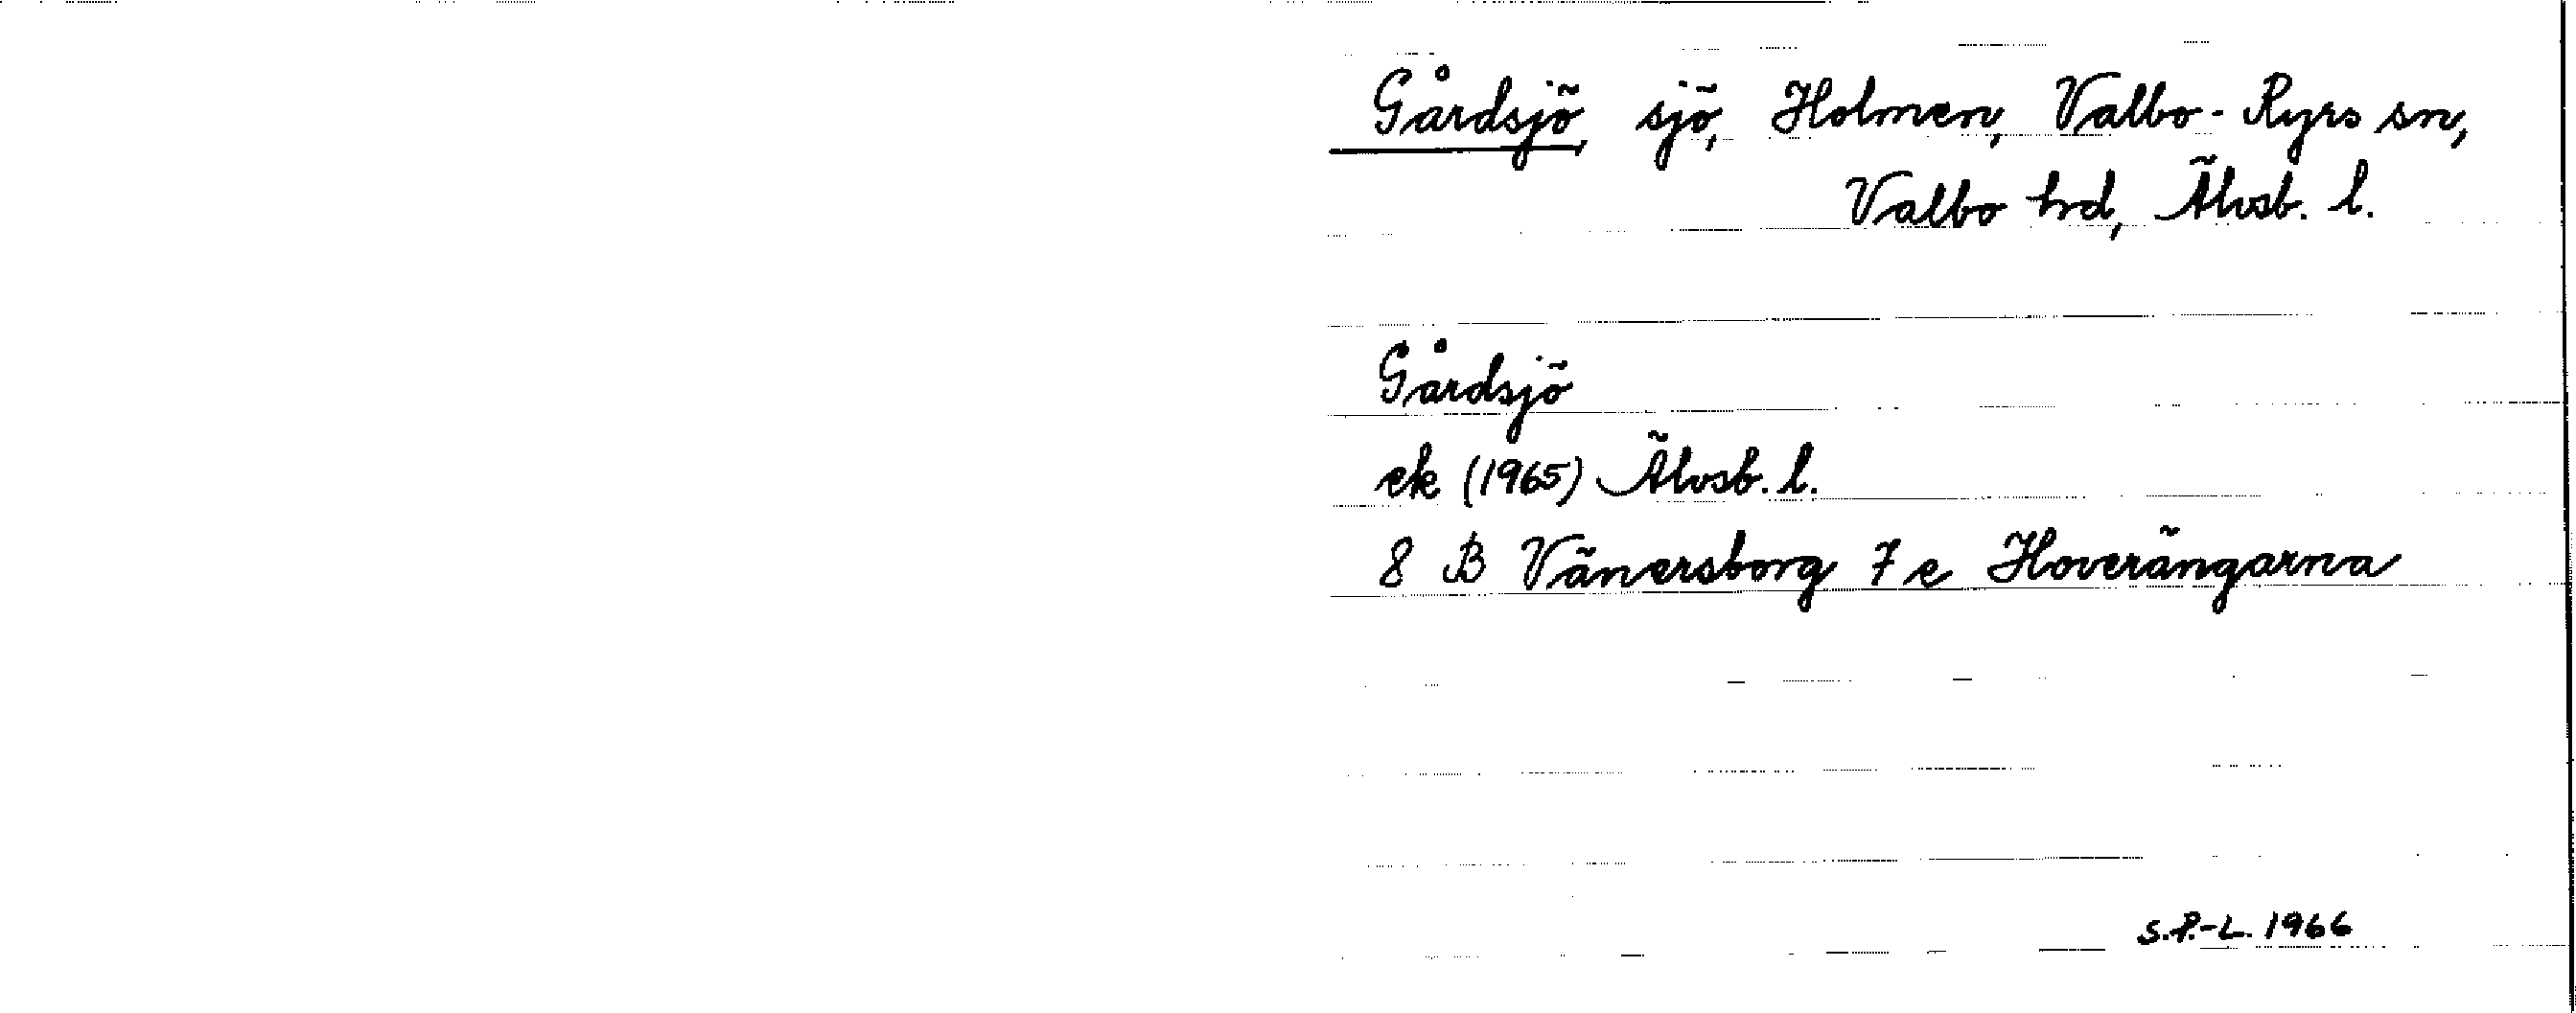 Gårdsjö, sjö, Holmen, Valbo-Ryrs sn,
Valbo hrd, Älvsb. l.
Gårdsjö
ek (1965) Älvsb. l.
8 B Vänersborg 7 e Hoverängarna
S.P.-L. 1966